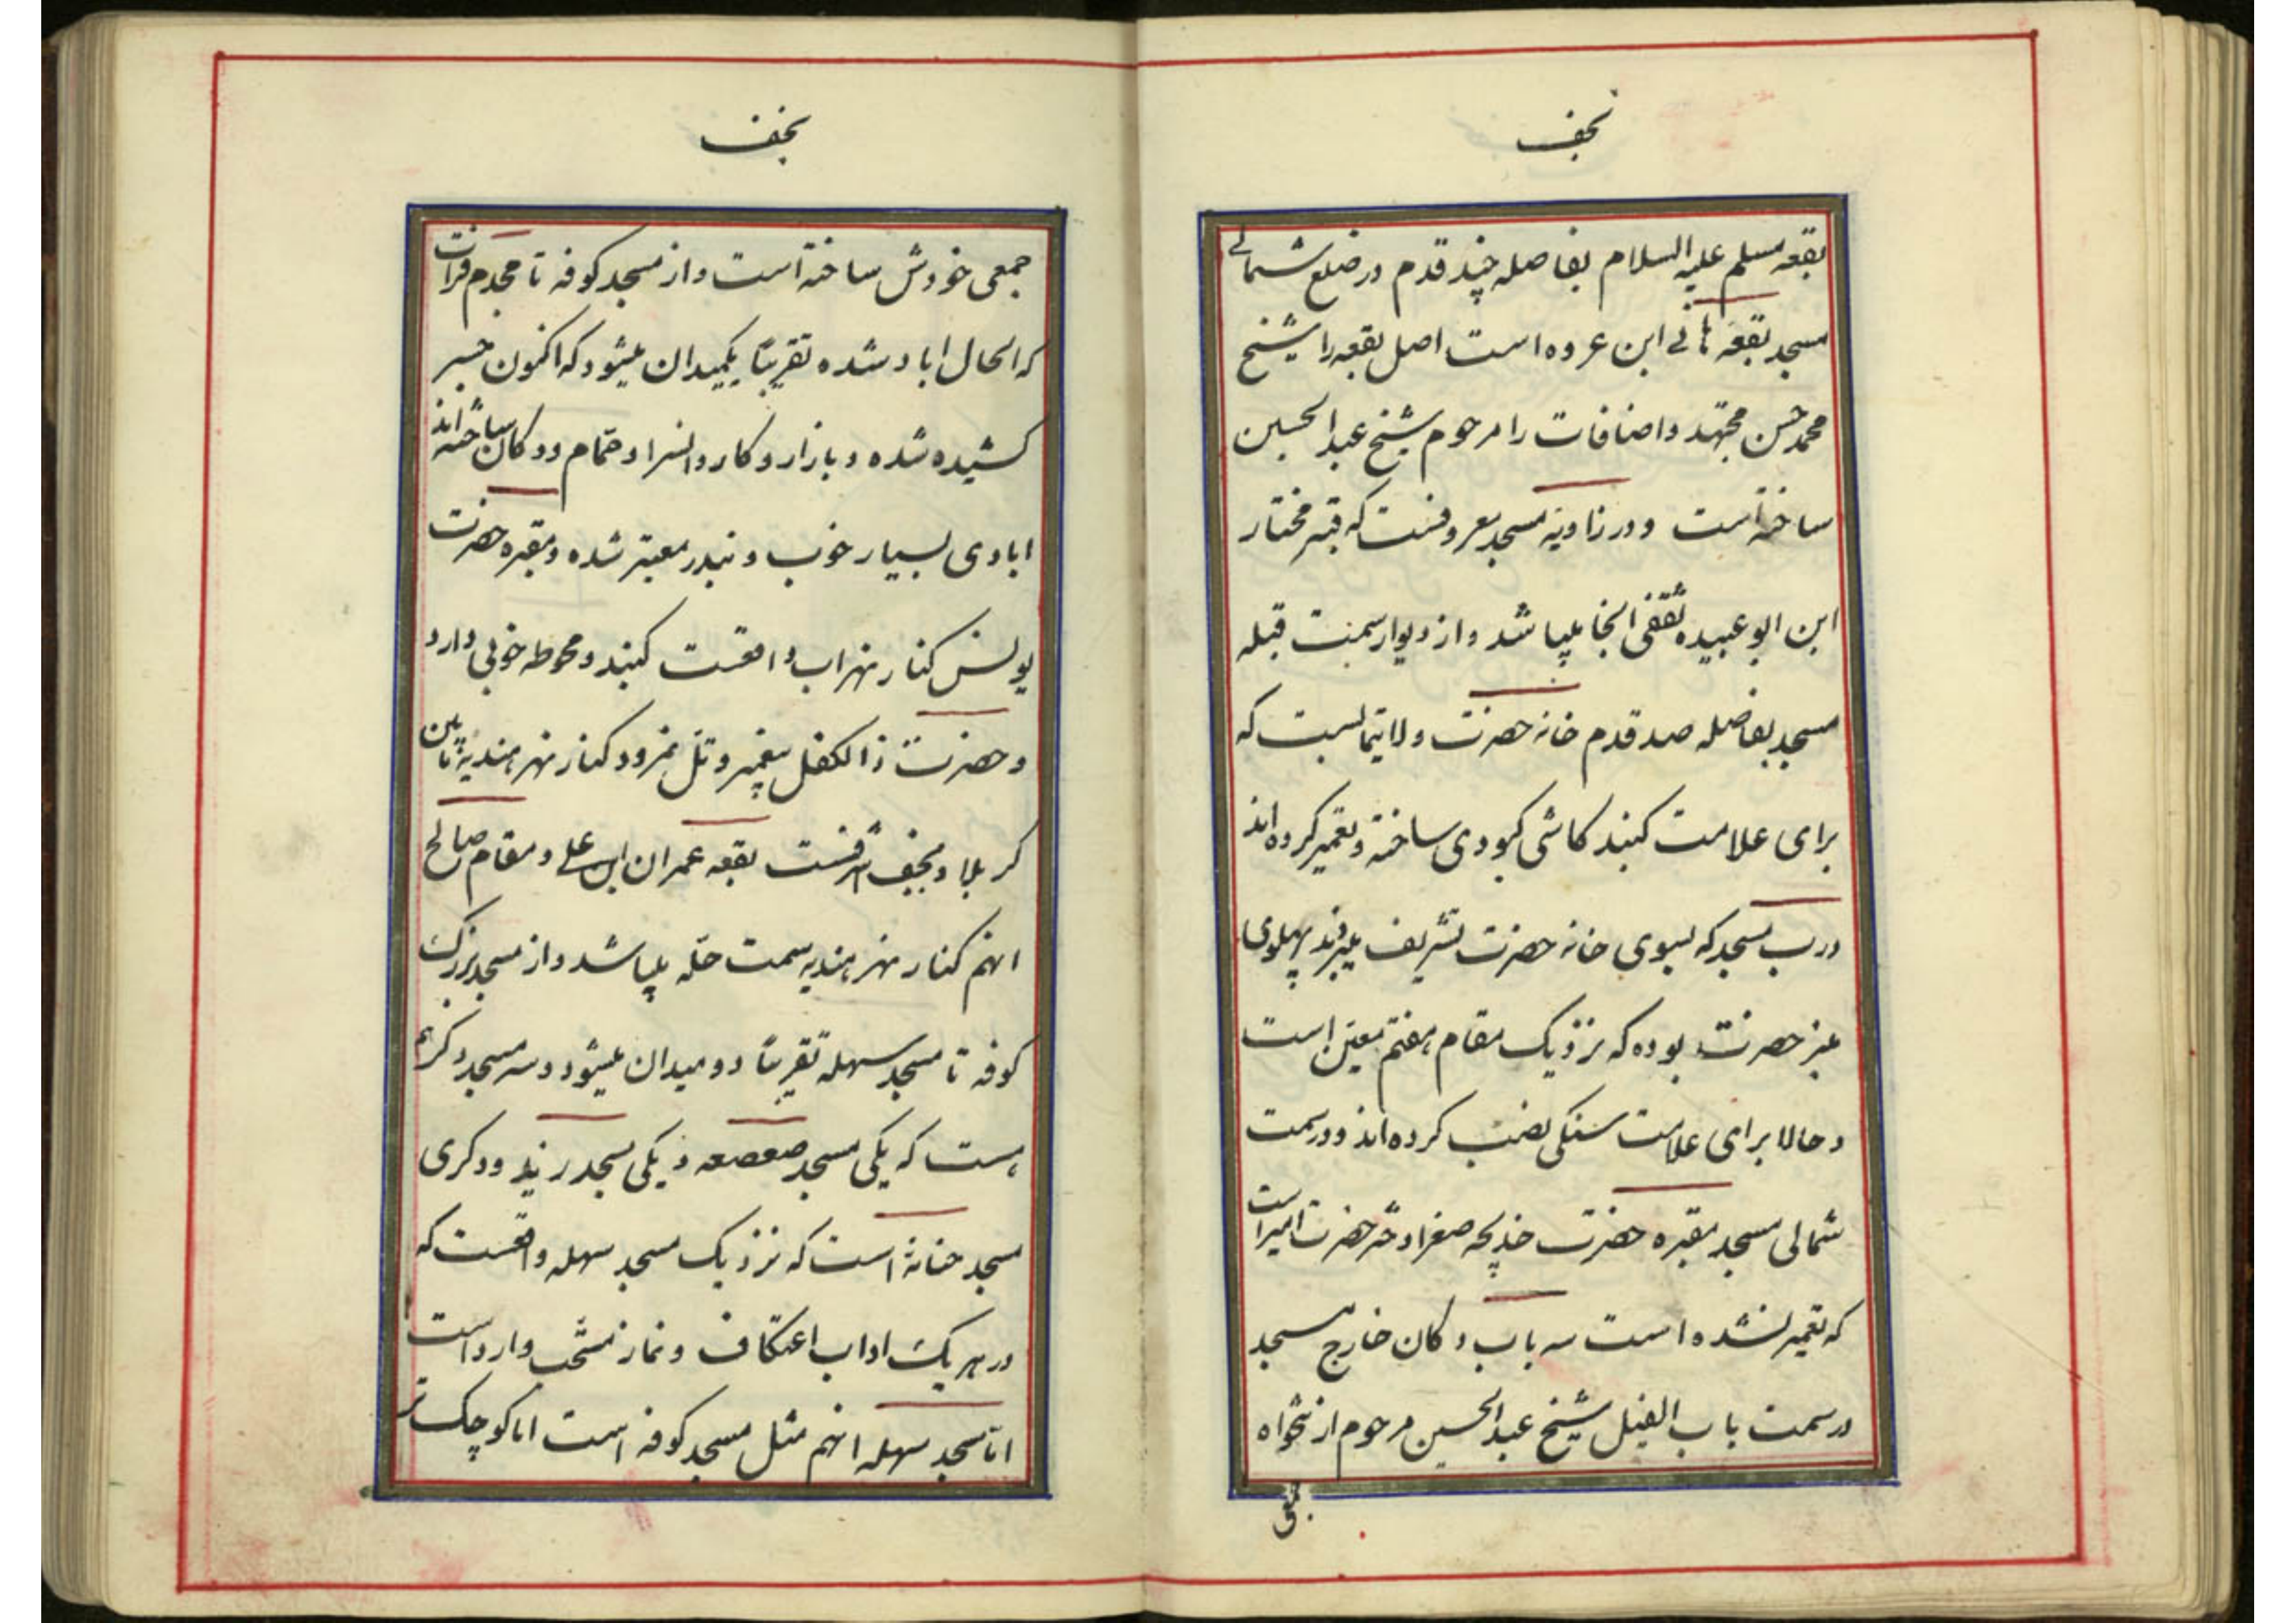 نجف
بقعه مسلم علیه السلام بفاصله چند قدم در ضلع شمالی
مسجد بقعه هانی ابن عروه است اصل بقعه را شیخ
محمد حسن مجتهد و اضافات را مرحوم شیخ عبدالحسین
ساخته است و در زاویه مسجد معروفست که قبر مختار
ابن ابو عبیده ثقفی انجا میباشد و از دیوار سمت قبله
مسجد بفاصله صد قدم خانه حضرت ولایتمابست که
برای علامت کنبد کاشی کبودی ساخته و تعمیر کرده‌اند
درب مسجد که بسوی خانه حضرت تشریف میبرند پهلوی
حضرت بوده که نزدیک مقام هفتم معین است
و حالا برای علامت سنکی نصب کرده‌اند و در سمت
شمالی مسجد مقبره حضرت خدیجه صغرا دختر حضرت امیر است
که تعمیر نشده است سه باب دکان خارج مسجد
در سمت باب الفیل شیخ عبدالحسین مرحوم از تنخواه
نجف
جمعی خودش ساخته است و از مسجد کوفه تا فرات
که الحال اباد شده تقریبًا یکمیدان میشود که اکنون جسر
کشیده شده و بازار و کاروانسرا و حمّام و دکان ساخته‌اند
ابادی بسیار خوب و بندر معتبر شده و مقبره حضرت
یونس کنار نهر اب واقعست کنبد و محوطه خوبی دارد
و حضرت ذالکفل پیغمبر و تل نمرود کنار نهر هندیه مابین
کربلا و نجف اشرفست بقعه عمران ابن علی و مقام صالح
انهم کنار نهر هندیه سمت حلّه میباشد و از مسجد بزرک
کوفه تا مسجد سهله تقریبًا دو میدان میشود و سه مسجد دکر هم
هست که یکی مسجد صعصعه و یکی مسجد زید و دکری
مسجد حنانه است که نزدیک مسجد سهله واقعست که
در هر یک اداب اعتکاف و نماز مستحب وارد است
امّا مسجد سهله انهم مثل مسجد کوفه است اما کوچک تر